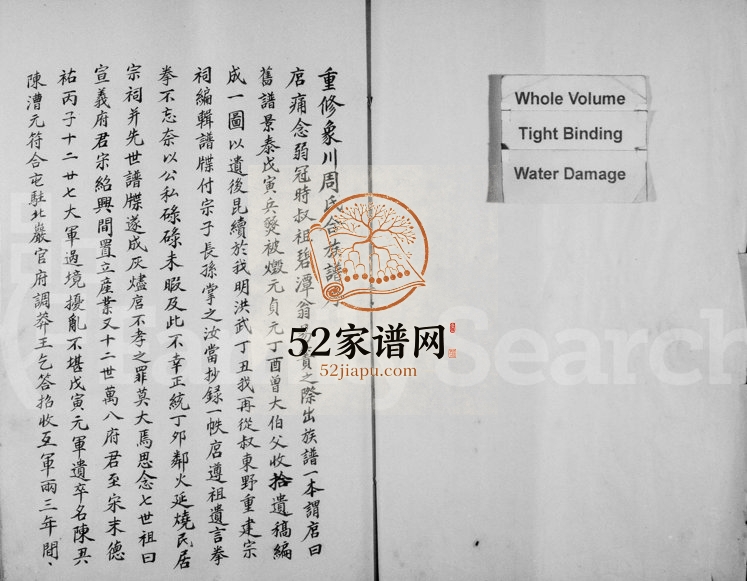 重修象川周氏合族譜
㝛痛念弱冠時叔祖碧潭翁易簀之際出族譜一本謂㝛曰
舊譜景泰戊寅兵燹被燬元貞元丁酉曾大伯父收拾遺稿編
成一圖以遺後昆續於我明洪武丁丑我再從叔東野重建宗
祠編輯譜牒付宗子長孫掌之汝當抄錄一帙㝛遵祖遺言拳
拳不忘奈以公私碌碌未暇及此不幸正統丁卯鄰火延燒民居
宗祠并先世譜牒遂成灰燼㝛不孝之罪莫大焉思念七世祖曰
宣義府君宗紹興間置立產業又十二世萬八府君至宋末德
祐丙子十二廿七大軍過境擾亂不堪戊寅元軍遺卒名陳具
陳漕元符合屯駐北嚴官府調莽王乞答招收互軍兩三年間、
52家谱网
52jiapu.com
Whole Volume
Tight Binding
Water Damage
FamilySearch